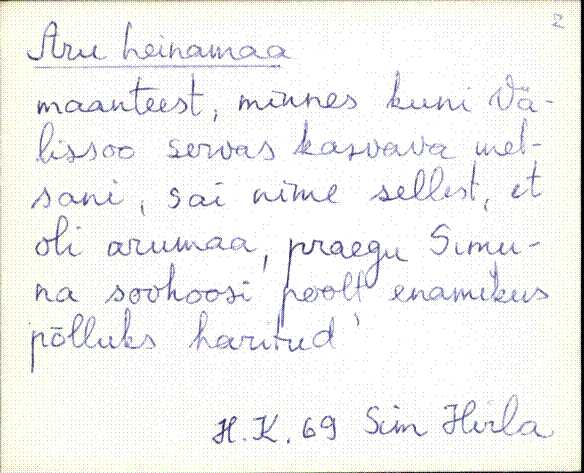 2
Aru heinamaa
maanteest, minnes kuni Vä-
lissoo servas kasvava met-
sani, sai nime sellest, et
oli arumaa, praegu Simu-
na sovhoosi poolt enamikus
põlluks haritud
H. K. 69 Sim Hirla